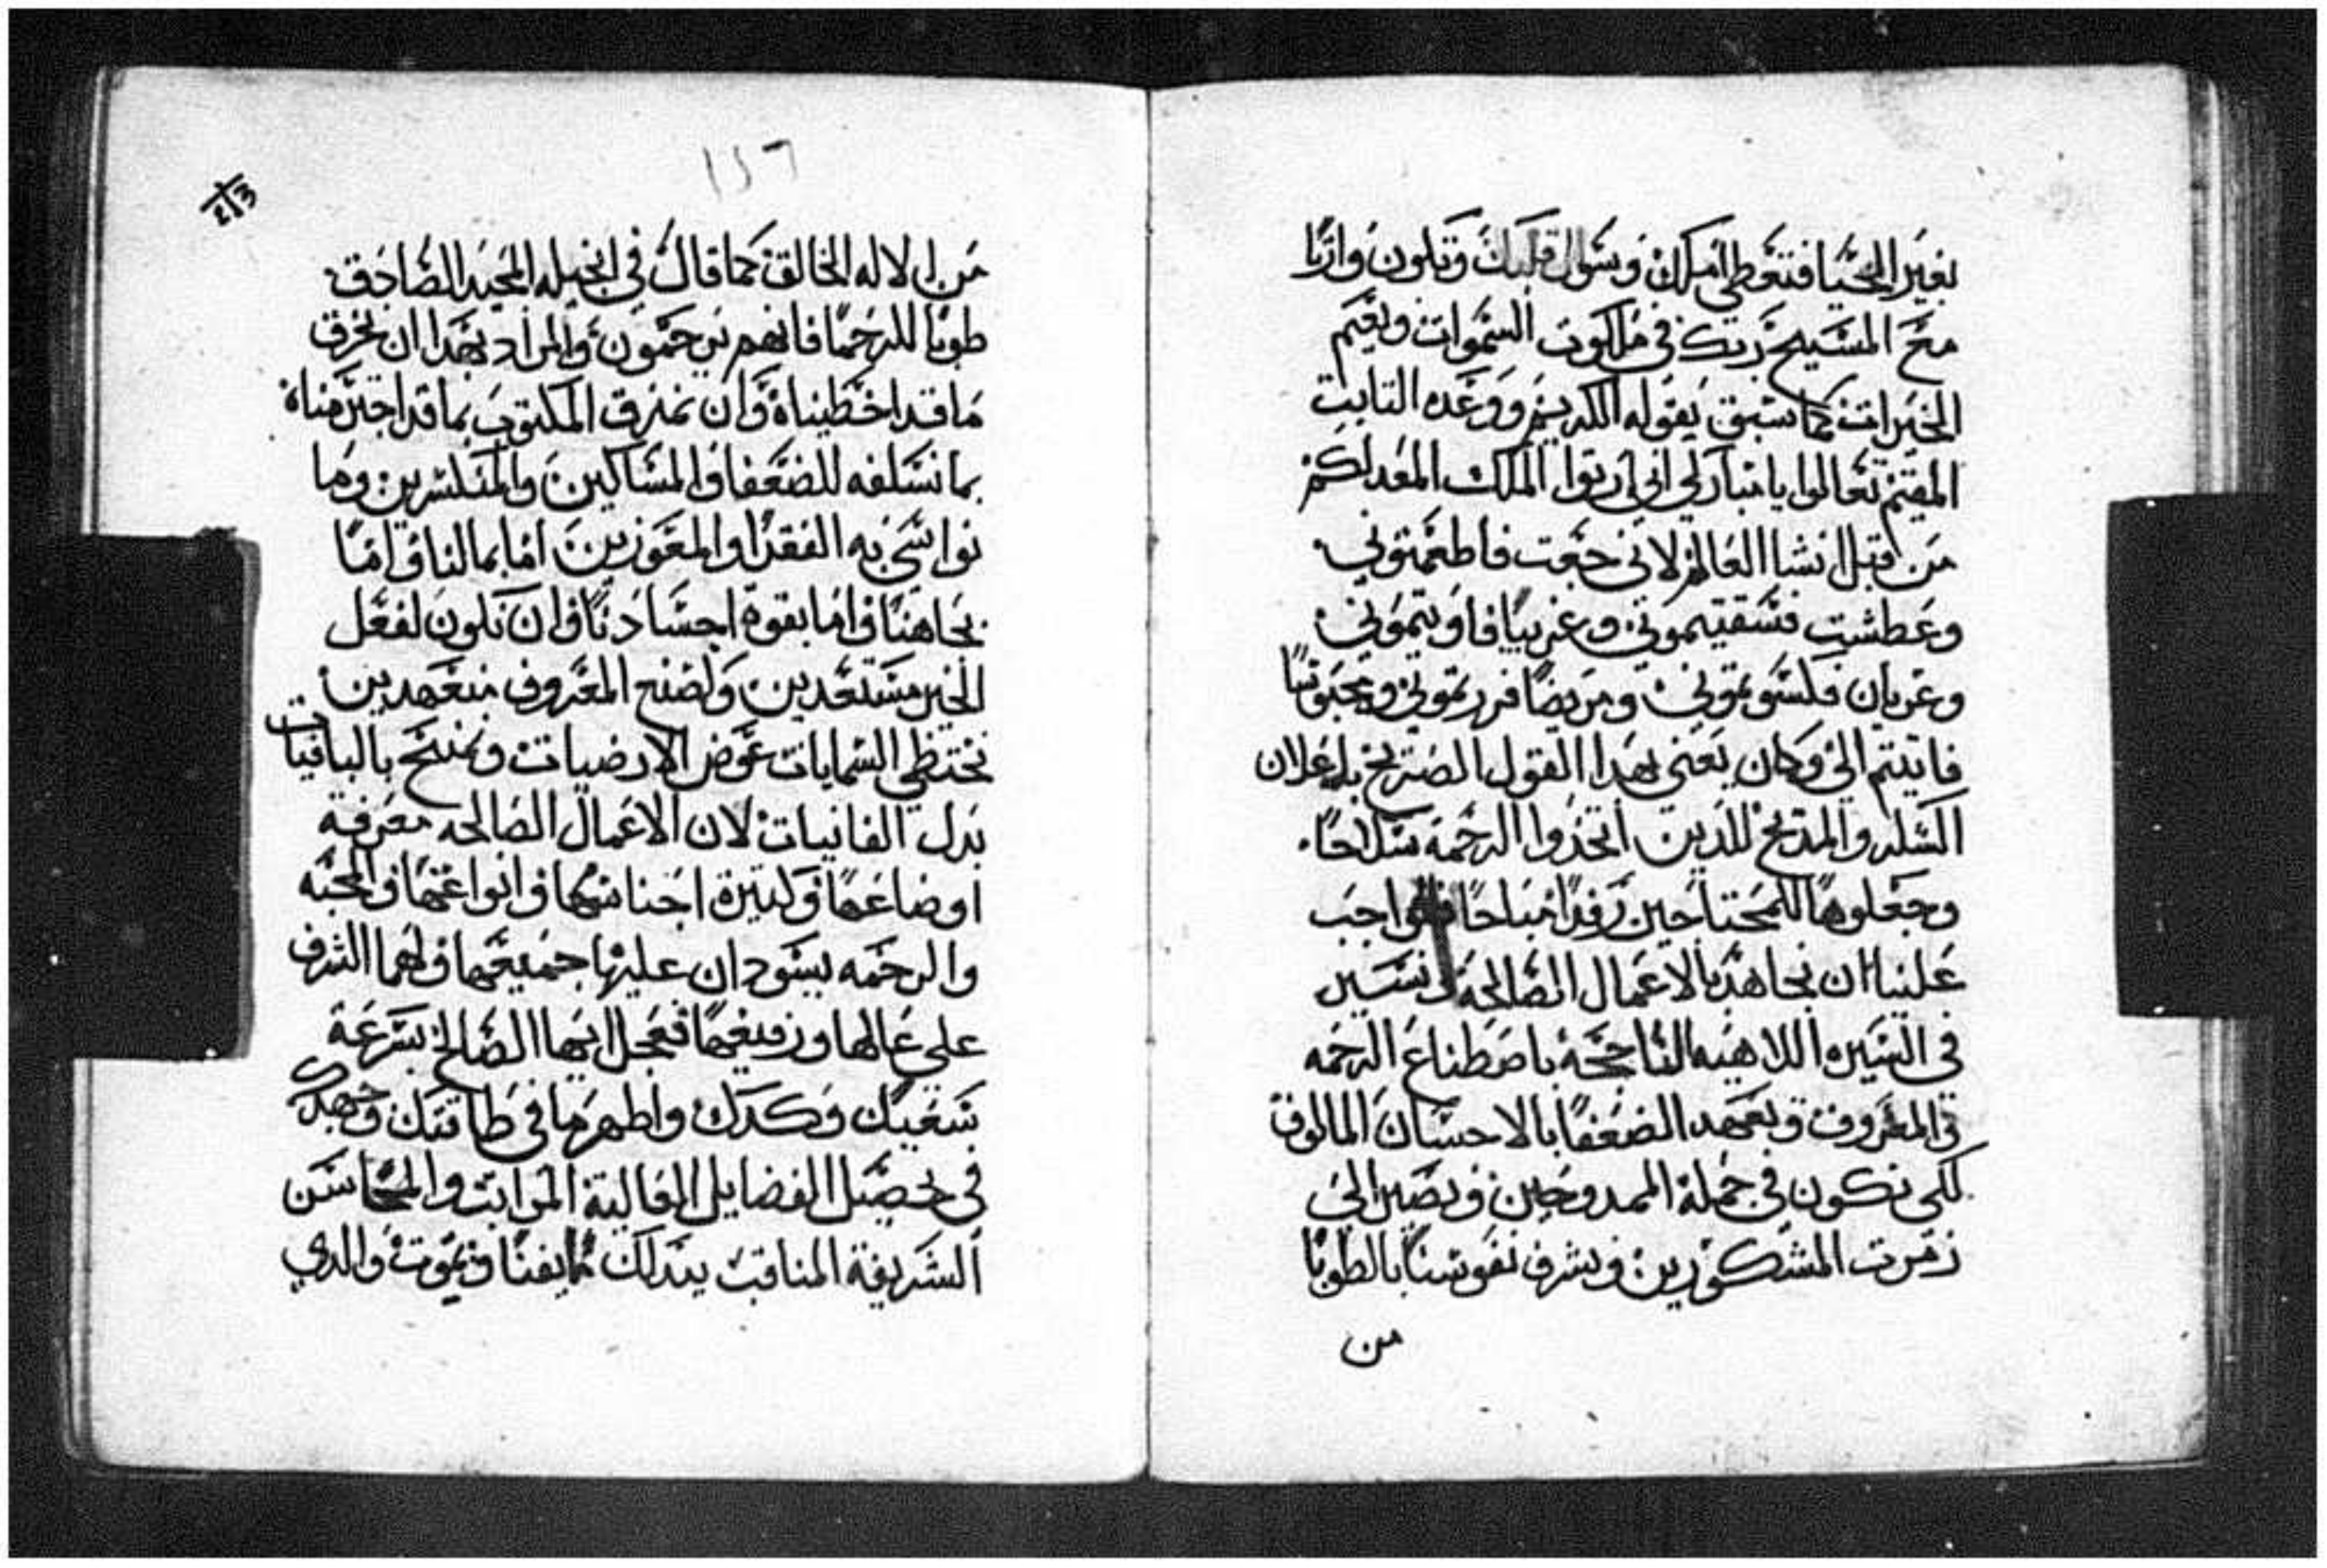 بغير المحيا فتعطي املك وسول قلبك وتكون وارثا
مع المسيح ربك في ملكوت السموات ونعيم
الخيرات كما سبق بقوله الكريم ووعده التابت
المقيم تعالوا يا مباركي ابي ارتوا الملك المعد لكم
من قبل انشا العالم لاني جعت فاطعمتوني
وعطشت فسقيتموني وغريبا فاويتموني
وعريان فكسوتموني ومريضا فزرتموني ومحبوسا
فاتيتم الي وكان يعني بهدا القول الصريح باعلان
الشكر والمديح للدين اتخدوا الرحمة سلاحا
وجعلوها للمحتاجين رفدا مباحا فواجب
علينا ان نجاهد بالاعمال الصالحة ونسير
في السيره اللاهيه الناجحة باصطناع الرحمه
والمعروف وبعهد الضعفا بالاحسان المالوف
لكي نكون في جملة الممدوحين ونصير الي
زمرت المشكورين ونشرف نفوسنا بالطوبا
من
١٢٦
213
من الاله الخالق كما قال في انجيله المجيد الصادق
طوبا للرحما فانهم يرحمون والمراد بهدا ان نخرق
ما قد اخطيناه وان نمزق المكتوب بما قد اجترمناه
بما نسلفه للضعفا والمساكين والمنكسرين وما
نواسي به الفقرا والمعوزين اما بمالنا واما
بجاهنا واما بقوة اجسادنا وان نكون لفعل
الخير مستعدين ولصنع المعروف متعهدين
نحتظي السمايات عوض الارضيات ونمنح بالباقيات
بدل الفانيات لان الاعمال الصالحه معرفة
اوضاعها وكتيرة اجناسها وانواعها والمحبه
والرحمه يسودان عليها جميعها ولهما الشرف
علي عاليها ورفيعها فعجل ايها الصالح بسرعة
سعيك وكدك واطهر ما في طاقتك وجهدك
في تحصيل الفضايل العالية المراتب والمحاسن
الشريفة المناقب يبدلك بما يفنا ويموت والدي